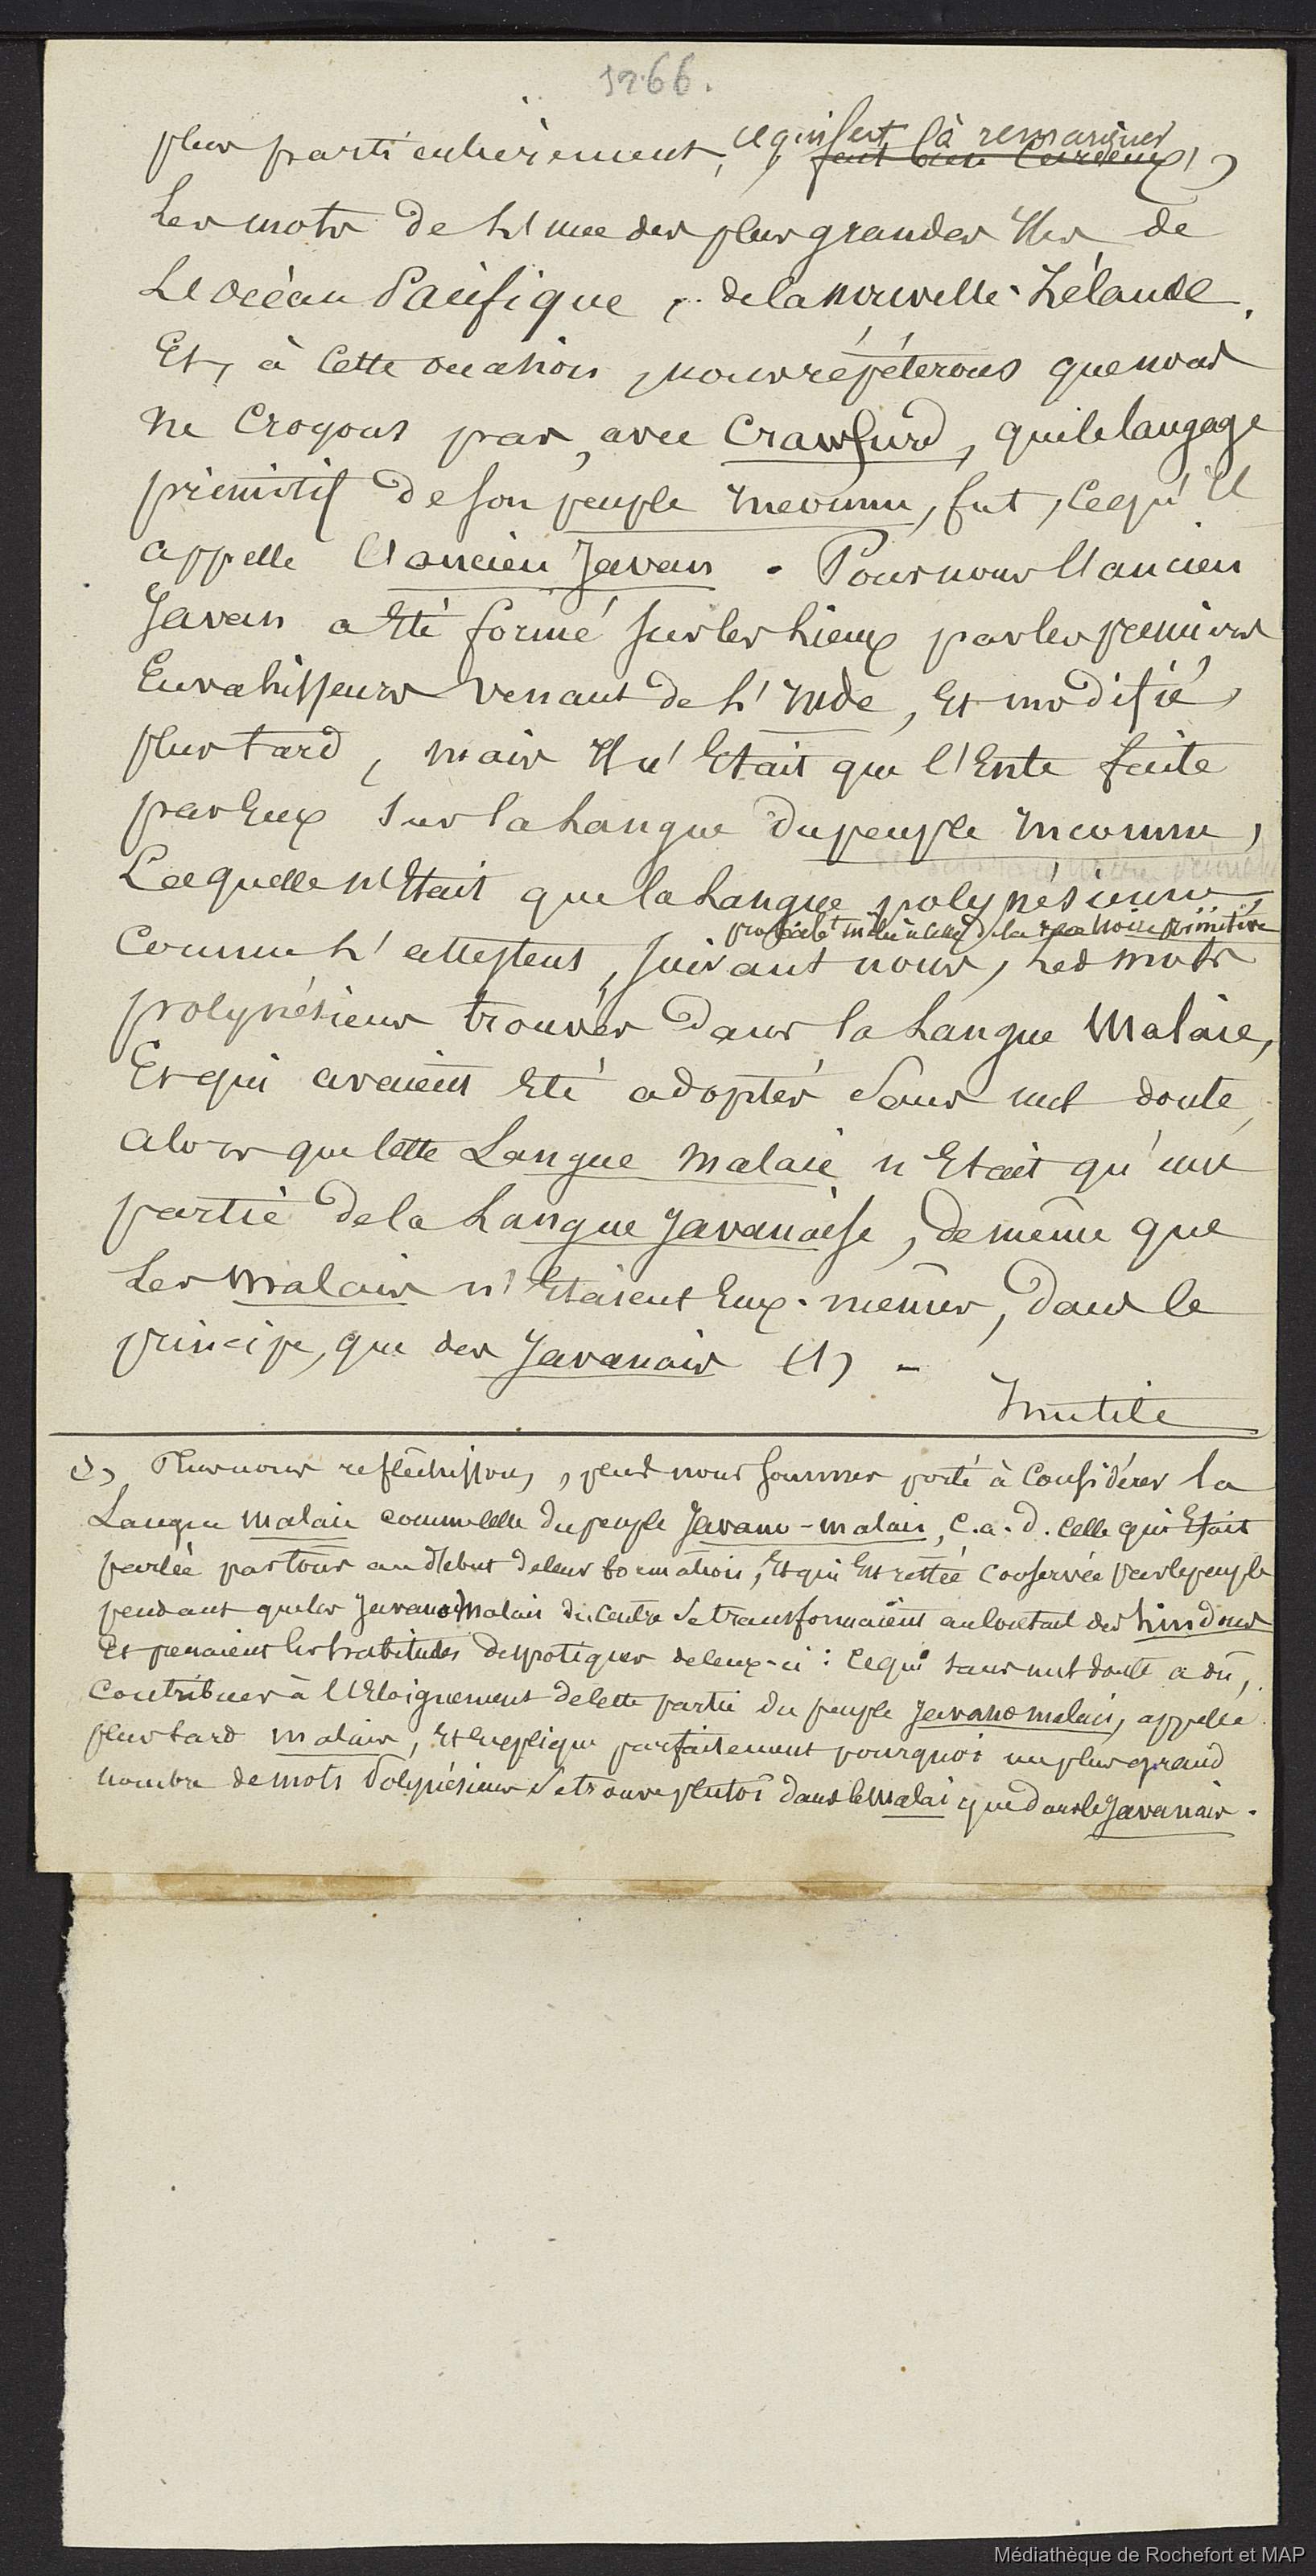 1266.
plus particulièrement, ce qui est là remarquer
fait bien Curieux,
Les mots de l'une des plus grandes Iles de
L'océan Pacifique, de la nouvelle-Zélande.
Et, à Cette occasion, nous répéterons que nous
ne Croyons pas, avec Crawfurd, que le langage
primitif de son peuple inconnu, fut, ce qu'il
appelle l'ancien Javan. Pour nous l'ancien
Javan a été formé sur les lieux par les premiers
Envahisseurs venant de l'Inde, et modifié
plus tard, mais il n'Etait que l'Ente faite
par Eux sur la Langue du peuple inconnu,
Laquelle n'Etait que la Langue polynésienne,
probablt mêlée à celle de la race noire primitive
comme l'attestent, suivant nous, Les mots
polynésiens trouvés dans la Langue Malaie,
Et qui avaient Eté adoptés sans nul doute,
alors que cette Langue malaie n'Etait qu'une
partie de la Langue Javanaise, de même que
Les malais n'Etaient Eux-mêmes, dans le
principe, que des Javanais (1) -
Inutile
(1) Plus nous refléchissons, plus nous sommes porté à Considérer la
Langue malaie comme celle du peuple Javano-malais, C. a. d. celle qui Etait
parlée par tous au début de leur formation, Et qui Est restée Conservée par le peuple
pendant que les Javano Malais du Centre se transformaient au Contact des hindous
Et prenaient les habitudes despotiques de ceux-ci : ce qui sans nul doute a dû,
Contribuer à l'Eloignement de cette partie du peuple Javano malais, appelée
plus tard malais, Et Explique parfaitement pourquoi un plus grand
nombre de mots Polynésiens se trouve plutôt dans le Malai que dans le Javanais.
Médiathèque de Rochefort et MAP